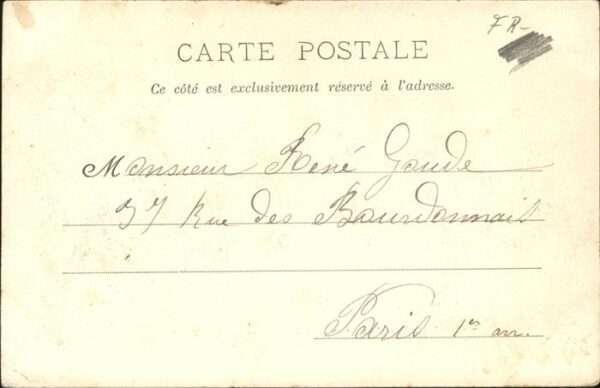 FR-
CARTE POSTALE
Ce côté est exclusivement réservé à l'adresse.
Monsieur René Gaude
37 Rue des Bourdonnais
Paris 1er arr.